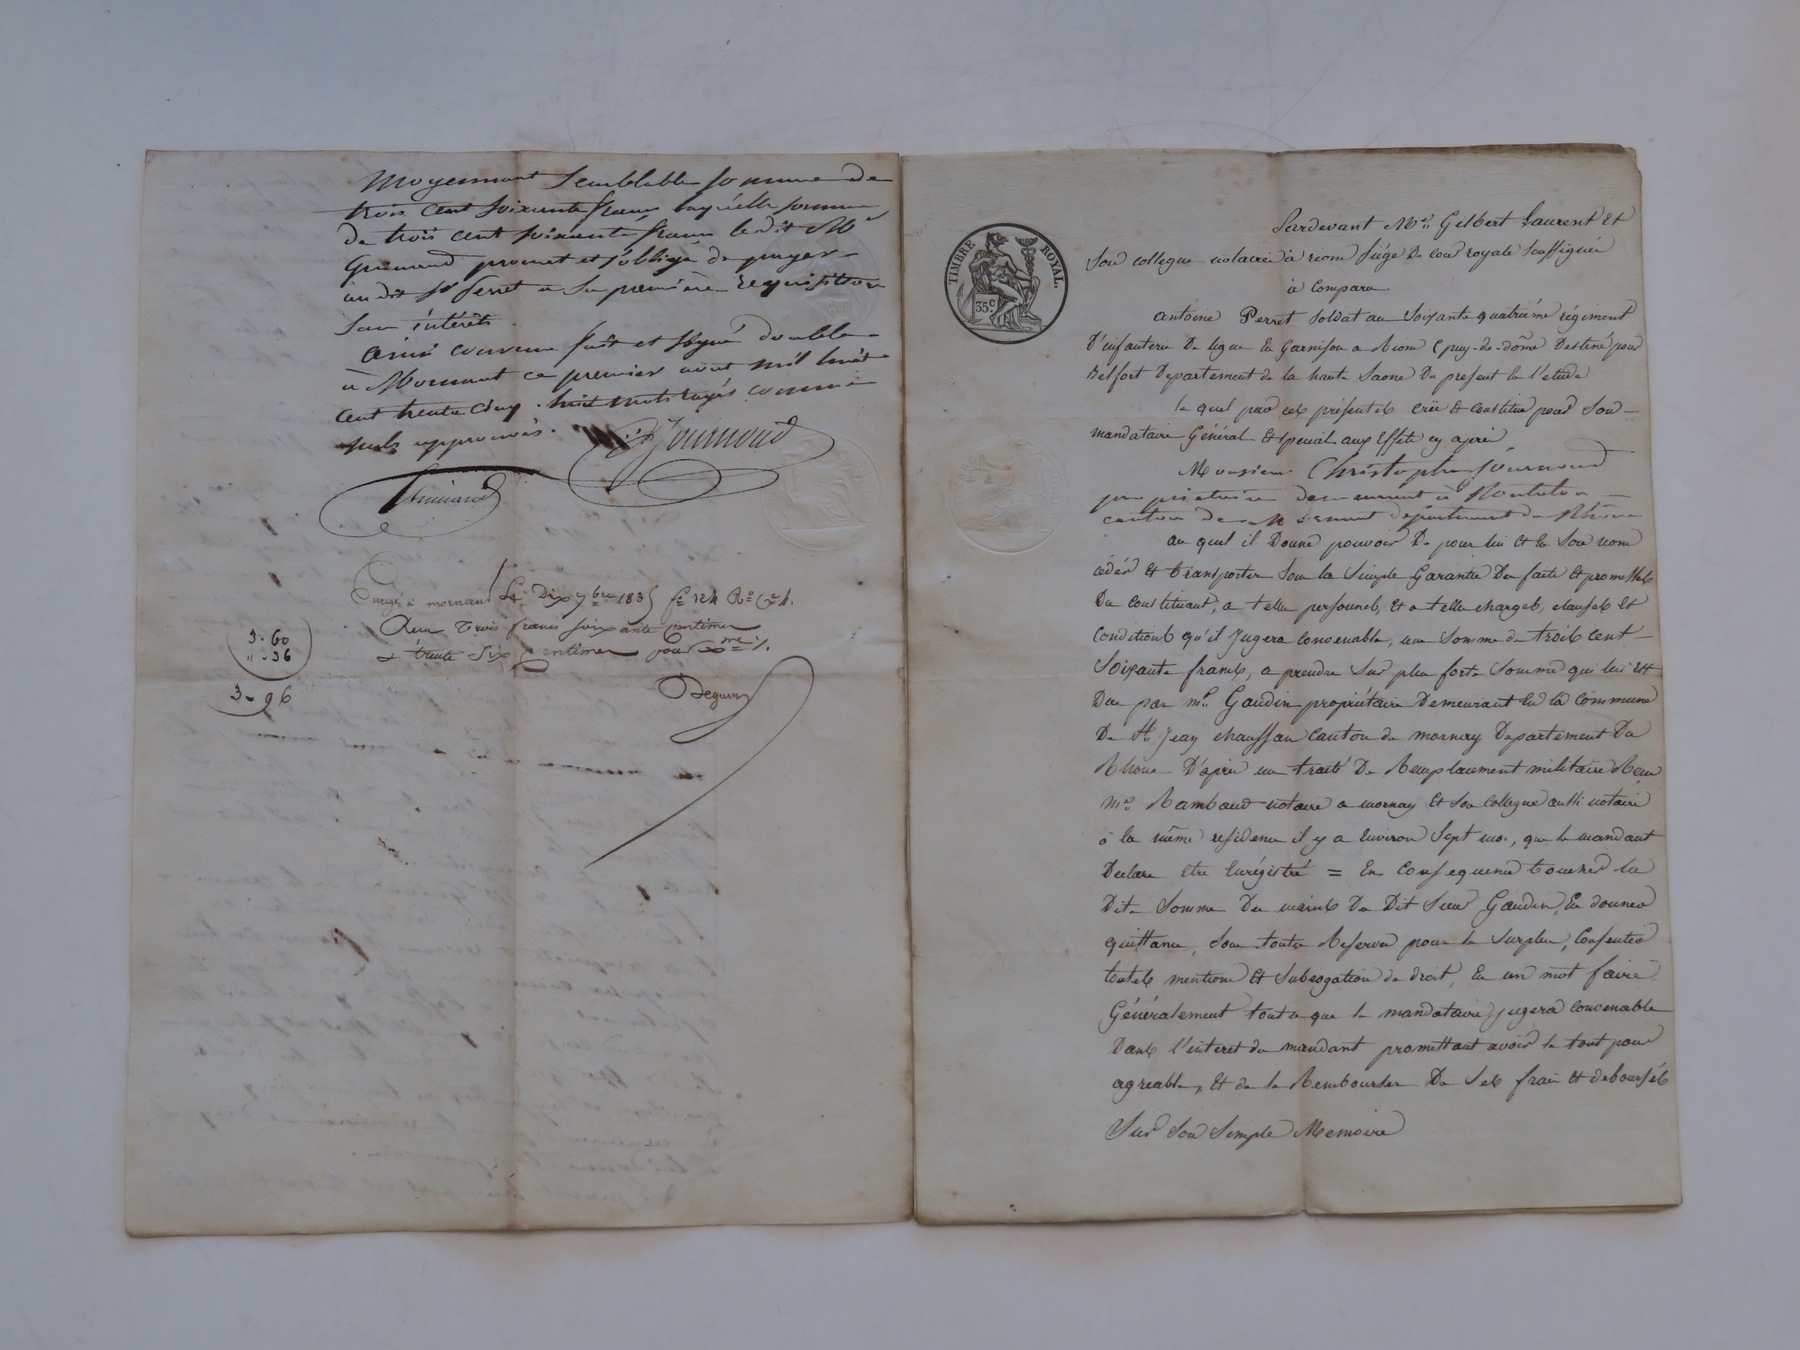 Moyennant semblable somme de
trois cent soixante francs laquelle somme
de trois cent soixante francs le dit Mr
Guinand promet et s'oblige de payer
au dit Sr Perret a sa première réquisition
san intérêts.
Ainsi convenu fait et signé double
à Mornant ce premier aout mil huit
cent trente cinq. huit mots rayés comme
nuls approuvés.
Journoud
Guinand
Enregé à mornant Le Dix 7bre 1835 fo 124 Ro Co 4.
Reçu trois francs soixante centimes
& trente six centimes pour xme %.
3-60
"-36
3-96
Deguin
TIMBRE ROYAL.
35c
Pardevant Me Gilbert Laurent Et
Son collegue notaires à riom siége De Cour royale Soussignés
à Comparu
Antoine Perret Soldat au Soixante quatriéme régiment
D'infanterie De ligne En Garnison a Riom (puy-de-dôme Destiné pour
Belfort Departement de la haute Saone De present En l'etude
le quel par ces présentes crée Et Constitue pour Son
mandataire Général Et Special aux Effets cy aprés
Monsieur Christophe Journoud
propriétaire demeurant à Rontalon
canton de Mornant département du Rhône
au quel il Donne pouvoir De pour lui Et En Son nom
céder Et transporter Sous la Simple Garantie Des faits Et promesses
Du Constituant, a telles personnes, Et a telles charges, clauses Et
Conditions qu'il Jugera convenable, une Somme de trois cent
Soixante francs, a prendre Sur plus forte Somme qui lui Est
Due par mr Gaudin propriétaire Demeurant En la Commune
De St Jean chaussan Canton de mornay Departement Du
Rhone D'aprés un traité De Remplacement militaire Reçu
me Rambaud notaire a mornay Et Son Collegue aussi notaire
à la même residence il y a Environ Sept mois, que le mandant
Declare etre Enrégistré = En Consequence toucher la
Dite Somme Des mains Du Dit Sieur Gaudin, En donner
quittance, Sous toutes Reserves pour le Surplus, Consentir
toutes mentions Et Subrogation de droit, En un mot faire
Généralement tout ce que le mandataire jugera Convenable
Dans l'interet du mandant promettant avoir le tout pour
agreable, Et de le Rembourser De Ses frais Et deboursés
Sur Son Simple Memoire